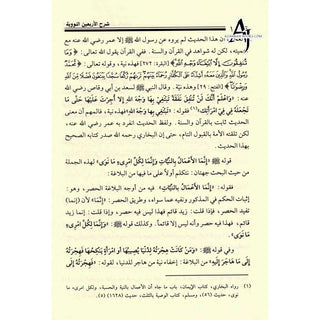 شرح الأربعين النووية
أن هذا الحديث لم يروه عن رسول الله ﷺ إلا عمر رضي الله عنه مع
أهميته، لكن له شواهد في القرآن والسنة. ففي القرآن يقول الله تعالى: ﴿وَمَا
تُنفِقُونَ إِلَّا ابْتِغَاءَ وَجْهِ اللَّهِ﴾ [البقرة: ٢٧٢] فهذه نية، وقوله تعالى: ﴿مُّحَمَّدٌ
رَّسُولُ اللَّهِ وَالَّذِينَ مَعَهُ أَشِدَّاءُ عَلَى الْكُفَّارِ رُحَمَاءُ بَيْنَهُمْ تَرَاهُمْ رُكَّعًا سُجَّدًا يَبْتَغُونَ فَضْلًا مِّنَ اللَّهِ
وَرِضْوَانًا﴾ [الفتح: ٢٩] وهذه نية. وقال النبي ﷺ لسعد بن أبي وقاص رضي الله
عنه: «وَاعْلَمْ أَنَّكَ لَنْ تُنْفِقَ نَفَقَةً تَبْتَغِي بِهَا وَجْهَ اللهِ إِلا أُجِرْتَ عَلَيْهَا حَتَّى مَا
تَجْعَلُهُ فِي فِي امْرَأَتِكَ»(١) فقوله: «تَبْتَغِي بِهَا وَجْهَ اللهِ» فهذه نية، فالمهم أن معنى
الحديث ثابت بالقرآن والسنة. ولفظ الحديث انفرد به عمر رضي الله عنه،
لكن تلقته الأمة بالقبول التام، حتى إن البخاري رحمه الله صدر كتابه الصحيح
بهذا الحديث.
قوله ﷺ: «إِنَّمَا الأَعْمَالُ بِالنِّيَّاتِ وَإِنَّمَا لِكُلِّ امْرِئٍ مَا نَوَى» لهذه الجملة
من حيث البحث جهتان: نتكلم أولاً على ما فيها من البلاغة:
فقوله: «إِنَّمَا الأَعْمَالُ بِالنِّيَّاتِ» فيه من أوجه البلاغة الحصر، وهو:
إثبات الحكم في المذكور ونفيه عما سواه، وطريق الحصر: «إِنَّمَا» لأن (إنما)
تفيد الحصر، فإذا قلت: زيد قائم فهذا ليس فيه حصر، وإذا قلت: إنما زيد
قائم، فهذا فيه حصر وأنه ليس إلا قائمًا. وكذلك قوله ﷺ: «وَإِنَّمَا لِكُلِّ امْرِئٍ
مَا نَوَى».
وفي قوله ﷺ: «وَمَنْ كَانَتْ هِجْرَتُهُ لِدُنْيَا يُصِيبُهَا أَوِ امْرَأَةٍ يَنْكِحُهَا فَهِجْرَتُهُ
إِلَى مَا هَاجَرَ إِلَيْهِ» من البلاغة: إخفاء نية من هاجر للدنيا، لقوله: «فَهِجْرَتُهُ إِلَى
(١) رواه البخاري، كتاب الإيمان، باب ما جاء أن الأعمال بالنية والحسبة، ولكل امرئ ما
نوى، حديث (٥٦)، ومسلم، كتاب الوصية، باب الوصية بالثلث، حديث (١٦٢٨) (٥).